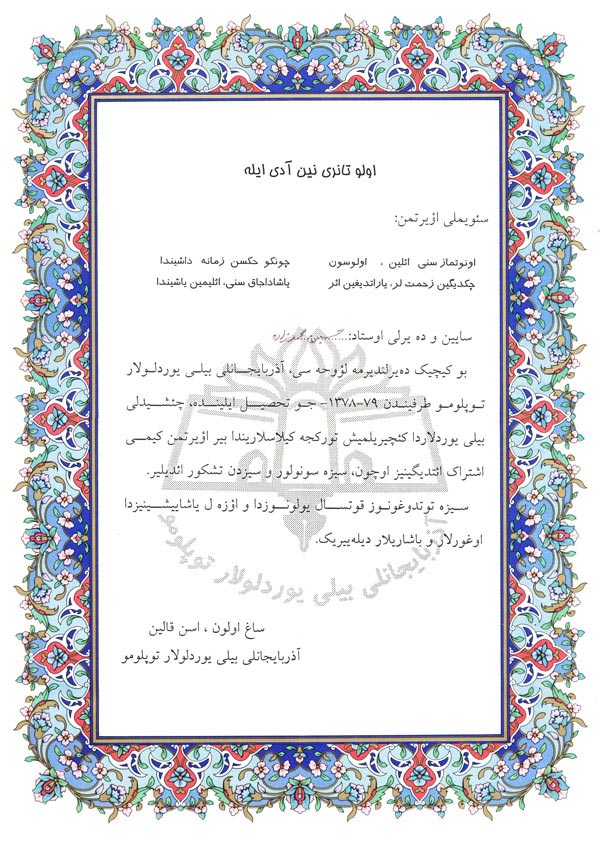 اولو تانری نین آدی ایله
سئویملی اؤیرتمن:
اونوتماز سنی ائلین ، اولوسون چونکو حکسن زمانه داشیندا
چکدیگین زحمت لر، یاراتدیغین اثر یاشاداجاق سنی، ائلیمین یاشیندا
سایین و ده یرلی اوستاد:
بو کیچیک دهیرلندیرمه لؤوحه سی، آذربایجانلی بیلی یوردلولار
توپلومو طرفیندن ۷۹-۱۳۷۸- جو تحصیل ایلینده، چئشیدلی
بیلی یوردلاردا کئچیریلمیش تورکجه کیلاسلاریندا بیر اؤیرتمن کیمی
اشتراک ائتدیگینیز اوچون، سیزه سونولور و سیزدن تشکور ائدیلیر.
سیزه توتدوغونوز قوتسال یولونوزدا و اؤزه ل یاشاییشینیزدا
اوغورلار و باشاریلار دیلهییریک.
آذربایجانلی بیلی یوردلولار توپلومو
ساغ اولون ، اسن قالین
آذربایجانلی بیلی یوردلولار توپلومو